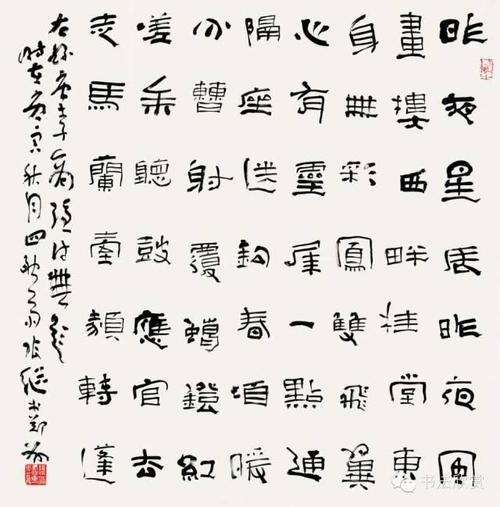 昨夜星辰昨夜風
畫樓西畔桂堂東
身無彩鳳雙飛翼
心有靈犀一點通
隔座送鉤春酒暖
分曹射覆蠟鐙紅
嗟余聽鼓應官去
走馬蘭臺類轉蓬
右錄唐李商隱詩無題
時在庚寅秋月四張繼書
书法欣赏